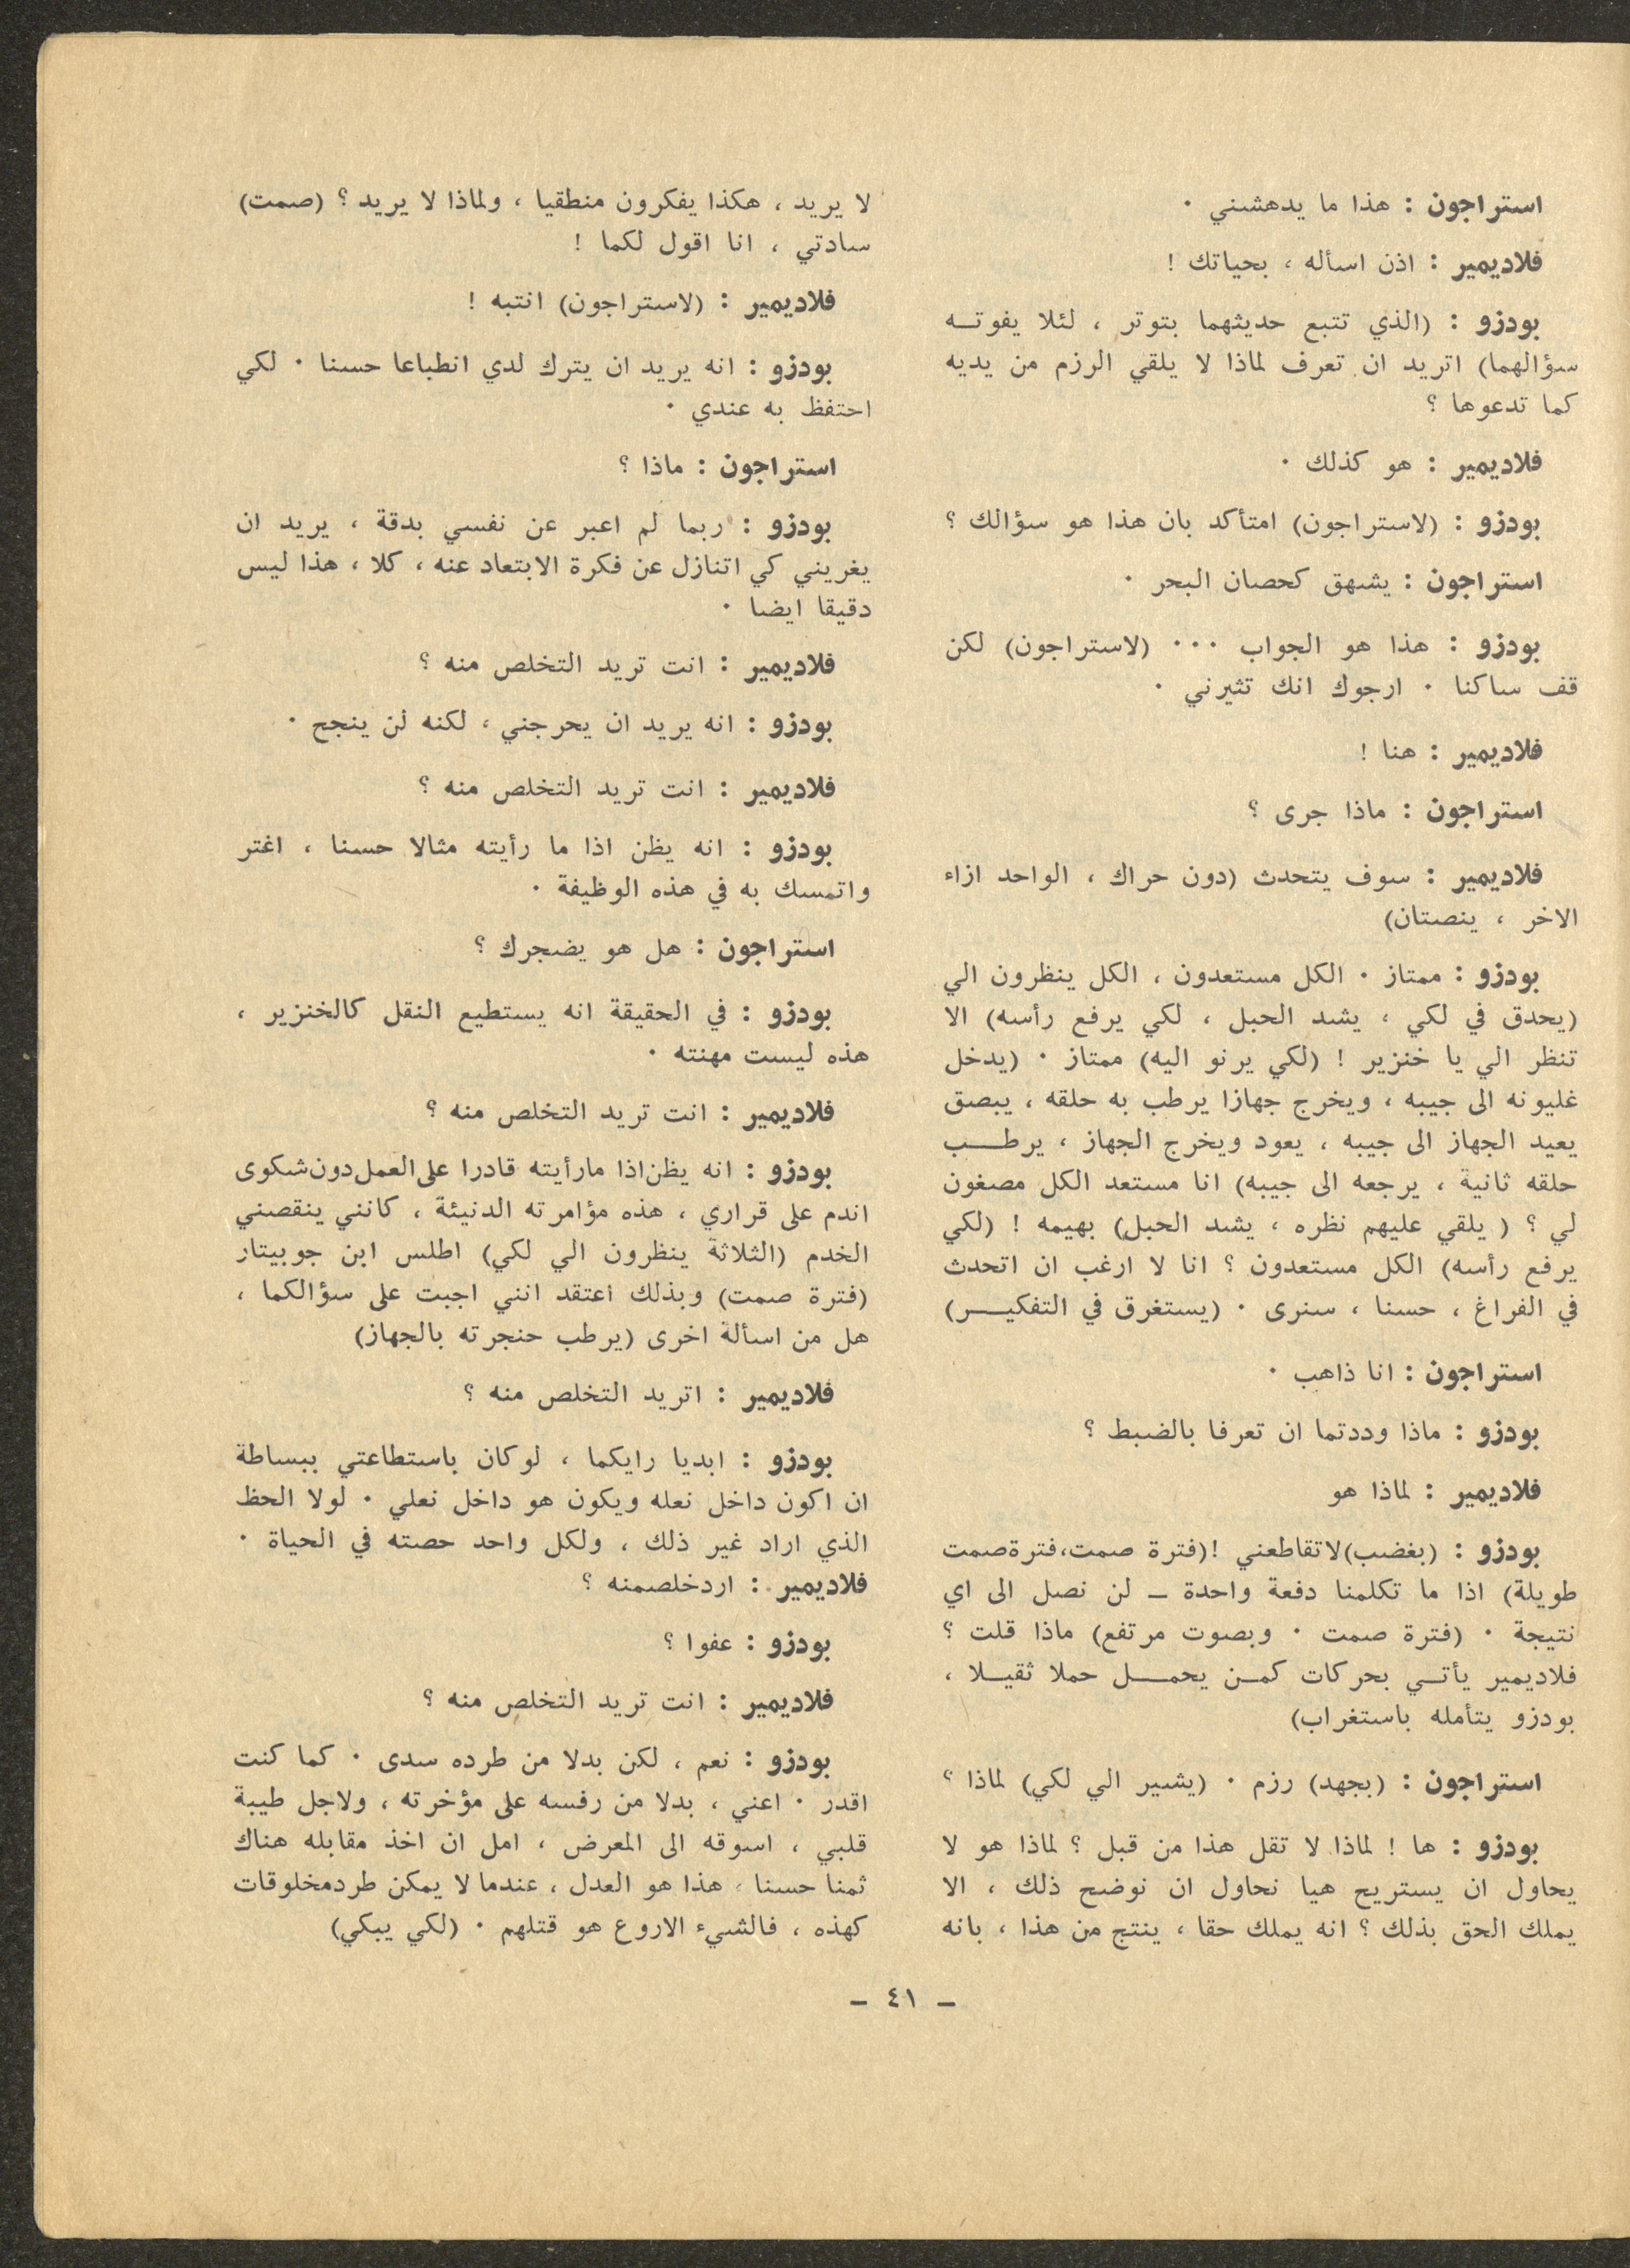 استراجون : هذا ما يدهشني ٠
فلاديمير : اذن اسأله ، بحياتك !
بودزو : (الذي تتبع حديثهما بتوتر ، لئلا يفوتــه
سؤالهما) اتريد ان تعرف لماذا لا يلقي الرزم من يديه
كما تدعوها ؟
فلاديمير : هو كذلك ٠
بودزو : (لاستراجون) امتأكد بان هذا هو سؤالك ؟
استراجون : يشهق كحصان البحر ٠
بودزو : هذا هو الجواب ٠٠٠ (لاستراجون) لكن
قف ساكنا ٠ ارجوك انك تثيرني ٠
فلاديمير : هنا !
استراجون : ماذا جرى ؟
فلاديمير : سوف يتحدث (دون حراك ، الواحد ازاء
الاخر ، ينصتان)
بودزو : ممتاز ٠ الكل مستعدون ، الكل ينظرون الي
(يحدق في لكي ، يشد الحبل ، لكي يرفع رأسه) الا
تنظر الي يا خنزير ! (لكي يرنو اليه) ممتاز ٠ (يدخل
غليونه الى جيبه ، ويخرج جهازا يرطب به حلقه ، يبصق
يعيد الجهاز الى جيبه ، يعود ويخرج الجهاز ، يرطــب
حلقه ثانية ، يرجعه الى جيبه) انا مستعد الكل مصغون
لي ؟ ( يلقي عليهم نظره ، يشد الحبل) بهيمه ! (لكي
يرفع رأسه) الكل مستعدون ؟ انا لا ارغب ان اتحدث
في الفراغ ، حسنا ، سنرى ٠ (يستغرق في التفكيــر)
استراجون : انا ذاهب ٠
بودزو : ماذا وددتما ان تعرفا بالضبط ؟
فلاديمير : لماذا هو
بودزو : (بغضب) لاتقاطعني ! (فترة صمت، فترة صمت
طويلة) اذا ما تكلمنا دفعة واحدة ــ لن نصل الى اي
نتيجة ٠ (فترة صمت ٠ وبصوت مرتفع) ماذا قلت ؟
فلاديمير يأتــي بحركات كمــن يحمــل حملا ثقيــلا ،
بودزو يتأمله باستغراب)
استراجون : (بجهد) رزم ٠ (يشير الي لكي) لماذا ؟
بودزو : ها ! لماذا لا تقل هذا من قبل ؟ لماذا هو لا
يحاول ان يستريح هيا نحاول ان نوضح ذلك ، الا
يملك الحق بذلك ؟ انه يملك حقا ، ينتج من هذا ، بانه
لا يريد ، هكذا يفكرون منطقيا ، ولماذا لا يريد ؟ (صمت)
سادتي ، انا اقول لكما !
فلاديمير : (لاستراجون) انتبه !
بودزو : انه يريد ان يترك لدي انطباعا حسنا ٠ لكي
احتفظ به عندي ٠
استراجون : ماذا ؟
بودزو : ربما لم اعبر عن نفسي بدقة ، يريد ان
يغريني كي اتنازل عن فكرة الابتعاد عنه ، كلا ، هذا ليس
دقيقا ايضا ٠
فلاديمير : انت تريد التخلص منه ؟
بودزو : انه يريد ان يحرجني ، لكنه لن ينجح ٠
فلاديمير : انت تريد التخلص منه ؟
بودزو : انه يظن اذا ما رأيته مثالا حسنا ، اغتر
واتمسك به في هذه الوظيفة ٠
استراجون : هل هو يضجرك ؟
بودزو : في الحقيقة انه يستطيع النقل كالخنزير ،
هذه ليست مهنته ٠
فلاديمير : انت تريد التخلص منه ؟
بودزو : انه يظن اذا مارأيته قادرا على العمل دون شكوى
اندم على قراري ، هذه مؤامرته الدنيئة ، كانني ينقصني
الخدم (الثلاثة ينظرون الي لكي) اطلس ابن جوبيتار
(فترة صمت) وبذلك اعتقد انني اجبت على سؤالكما ،
هل من اسألة اخرى (يرطب حنجرته بالجهاز)
فلاديمير : اتريد التخلص منه ؟
بودزو : ابديا رايكما ، لوكان باستطاعتي ببساطة
ان اكون داخل نعله ويكون هو داخل نعلي ٠ لولا الحظ
الذي اراد غير ذلك ، ولكل واحد حصته في الحياة ٠
فلاديمير : اردخلصمنه ؟
بودزو : عفوا ؟
فلاديمير : انت تريد التخلص منه ؟
بودزو : نعم ، لكن بدلا من طرده سدى ٠ كما كنت
اقدر ٠ اعني ، بدلا من رفسه على مؤخرته ، ولاجل طيبة
قلبي ، اسوقه الى المعرض ، امل ان اخذ مقابله هناك
ثمنا حسنا ، هذا هو العدل ، عندما لا يمكن طردمخلوقات
كهذه ، فالشيء الاروع هو قتلهم ٠ (لكي يبكي)
ــ ٤١ ــ